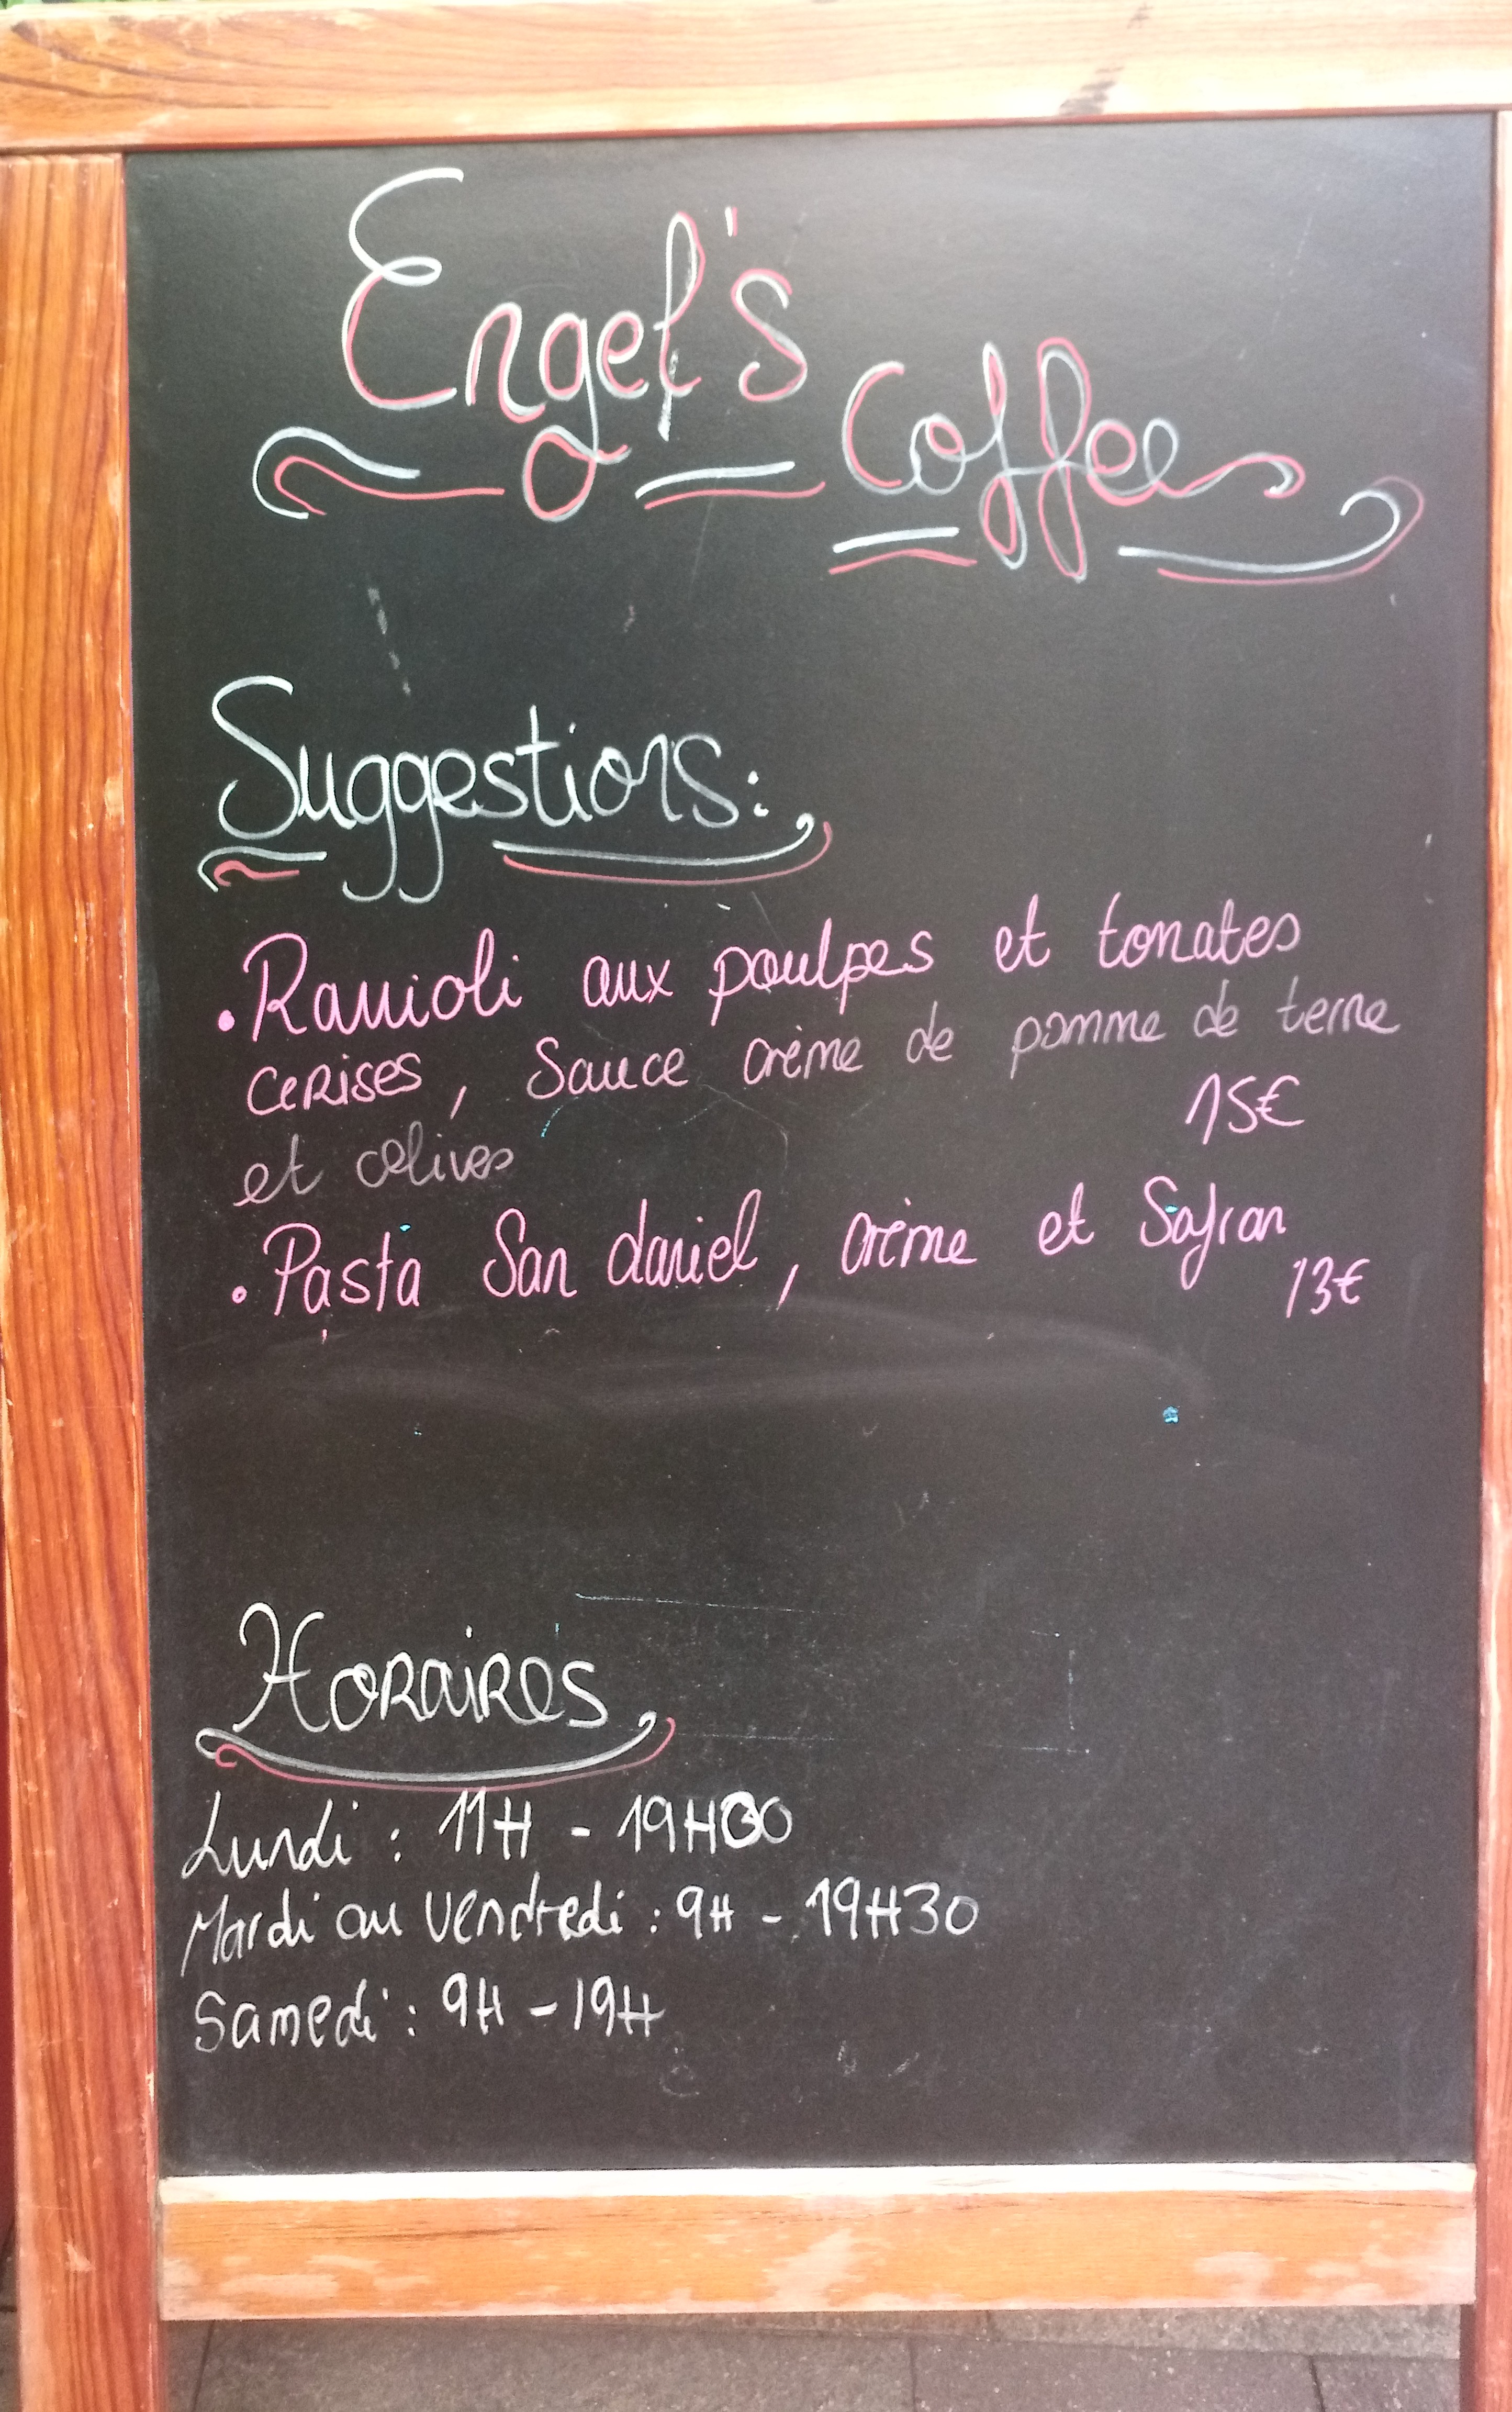 Engel's
Coffee
Suggestions:
• Ravioli aux poulpes et tomates
cerises, Sauce crème de pomme de terre
et olives 15€
• Pasta San daniel, crème et Safran
13€
Horaires
Lundi : 11H - 19H00
Mardi au vendredi : 9H - 19H30
Samedi : 9H - 19H